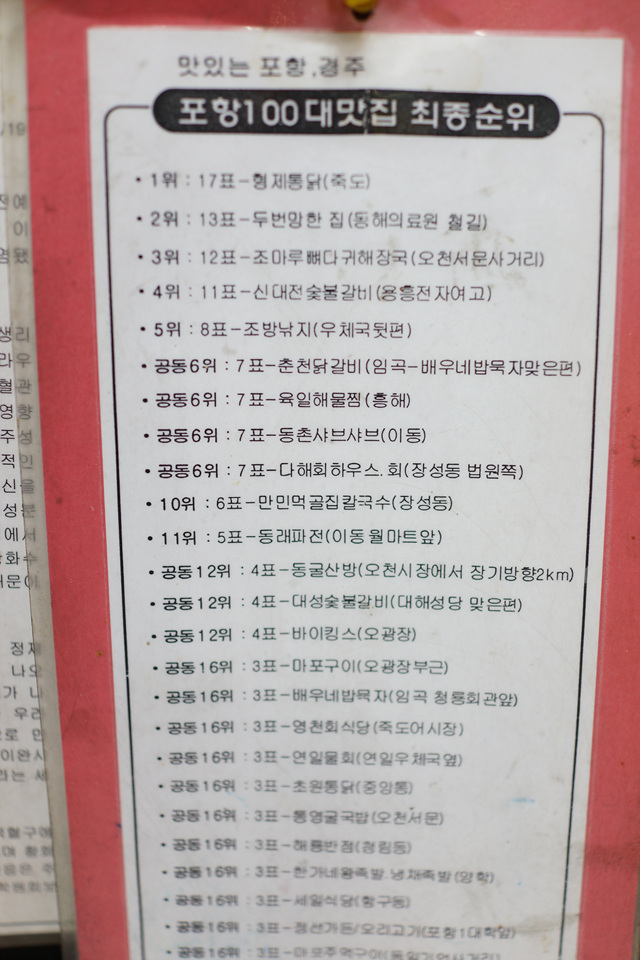 맛있는 포항,경주
포항100대맛집 최종순위
• 1위 : 17표-형제통닭(죽도)
• 2위 : 13표-두번망한 집(동해의료원 철길)
• 3위 : 12표-조마루뼈다귀해장국(오천서문사거리)
• 4위 : 11표-신대전숯불갈비(용흥전자여고)
• 5위 : 8표-조방낚지(우체국뒷편)
• 공동6위 : 7표-춘천닭갈비(임곡-배우네밥묵자맞은편)
• 공동6위 : 7표-육일해물찜(흥해)
• 공동6위 : 7표-동촌샤브샤브(이동)
• 공동6위 : 7표-다해회하우스.회(장성동 법원쪽)
• 10위 : 6표-만민먹골집칼국수(장성동)
• 11위 : 5표-동래파전(이동월마트앞)
• 공동12위 : 4표-동굴산방(오천시장에서 장기방향2km)
• 공동12위 : 4표-대성숯불갈비(대해성당 맞은편)
• 공동12위 : 4표-바이킹스(오광장)
• 공동16위 : 3표-마포구이(오광장부근)
• 공동16위 : 3표-배우네밥묵자(임곡 청룡회관앞)
• 공동16위 : 3표-영천회식당(죽도어시장)
• 공동16위 : 3표-연일물회(연일우체국옆)
• 공동16위 : 3표-초원통닭(중앙통)
• 공동16위 : 3표-통영굴국밥(오천서문)
• 공동16위 : 3표-해룡반점(청림동)
• 공동16위 : 3표-한가네왕족발.냉채족발(양학)
• 공동16위 : 3표-세일식당(항구동)
• 공동16위 : 3표-정선가든/오리고기(포항1대학앞)
• 공동16위 : 3표-마포주먹구이
/19
전예
이
생리
라우
혈관
영향
주성
적인
신을
성분
에서
정제
나오
가 나
우리